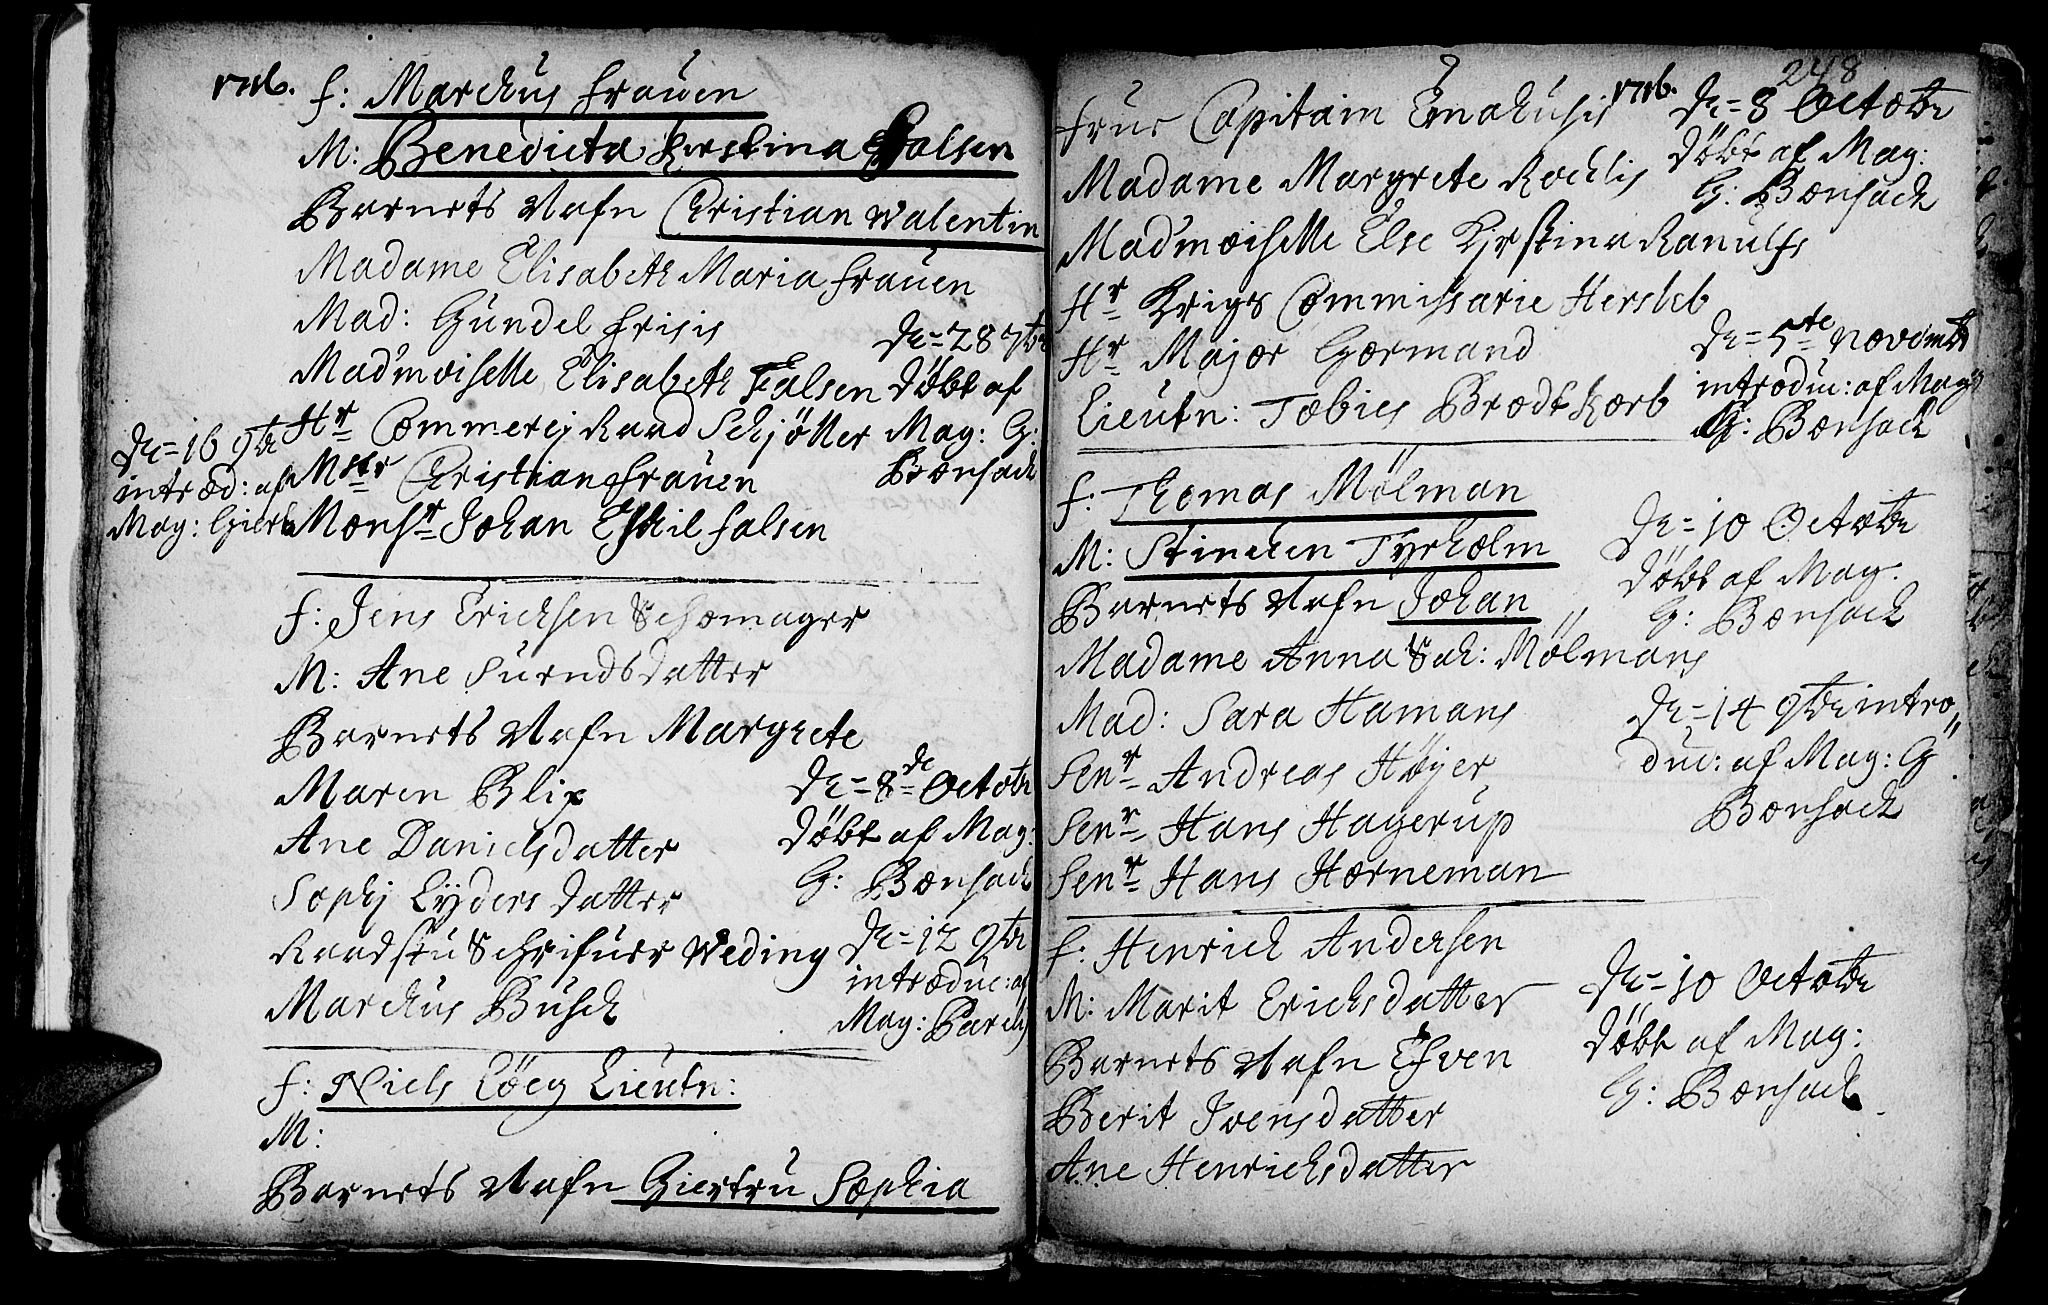 1716.
F: Marckus Frauen
M: Benedicta Kirstina Falsen
Barnets Nafn Christian Walentin
Madame Elisabeth Maria Frauen
Mad: Gundel Frisis
Mad'moiselle Elisabeth Falsen
Hr Commercij Raad Schjøller
Msr Christian Frauen
Monsr Johan Eskil Falsen
De= 28 7br
Døbt af
Mag: G:
Bonsach
De= 16 9br
introd: af
Mag:
F: Jens Ericksen Schomager
M: Ane Suendsdatter
Barnets Nafn Margrete
Maren Blix
Ane Danielsdatter
Sophj Lÿdersdatter
Raadstu Schrifuer Weding
Marckus Busch
De= 8de Octobr
Døbt af Mag:
G: Bonsach
De= 12 9br
introduc: af
Mag:
F: Niels Cöcg Lieutn:
M:
Barnets Nafn Giertru Sophia
248
1716.
Frue Capitain Emahusis
Madame Margrete Rochlis
Mad'moiselle Else Kjrstina Ranulfs
Hr Krigs Commissarie Hersleb
Hr Major Gormand
Lieutn: Tobies Brodtkorb
De= 8 Octobr
Døbt af Mag:
G: Bonsach
De= 5te Novembr
introduc: af Mag:
G: Bonsach
F: Thomas Mølman
M: Stinchen Tyrholm
Barnets Nafn Johan
Madame Anna Sal: Mölmans
Mad: Sara Hamans
Senr Andreas Høyer
Senr Hans Hagerup
Senr Hans Horneman
De= 10 Octobr
Døbt af Mag.
G: Bonsach
De= 14 9br intro
duc: af Mag: G
Bonsach
F: Henrich Andersen
M: Marit Ericksdatter
Barnets Nafn Esven
Berit Ivensdatter
Ane Henrichsdatter
De= 10 Octobr
Døbt af Mag:
G: Bonsach